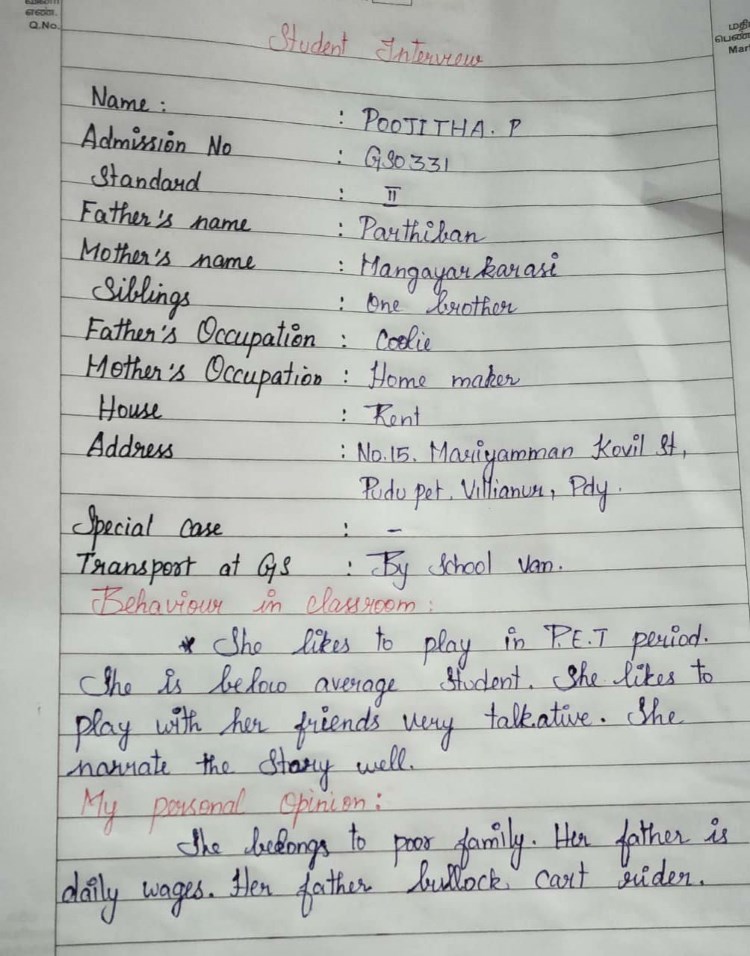 எண்.
Q.No.
Student Interview
Name : : POOJITHA. P
Admission No : GS0331
Standard : II
Father's name : Parthiban
Mother's name : Mangayarkarasi
Siblings : One brother
Father's Occupation : Coolie
Mother's Occupation : Home maker
House : Rent
Address : No.15. Mariyamman Kovil St,
Pudu pet, Villianur, Pdy.
Special case : -
Transport at GS : By School van.
Behaviour in classroom :
* She likes to play in P.E.T period.
She is below average student. She likes to
play with her friends very talkative. She
narrate the Story well.
My personal Opinion :
She belongs to poor family. Her father is
daily wages. Her father bullock cart rider.